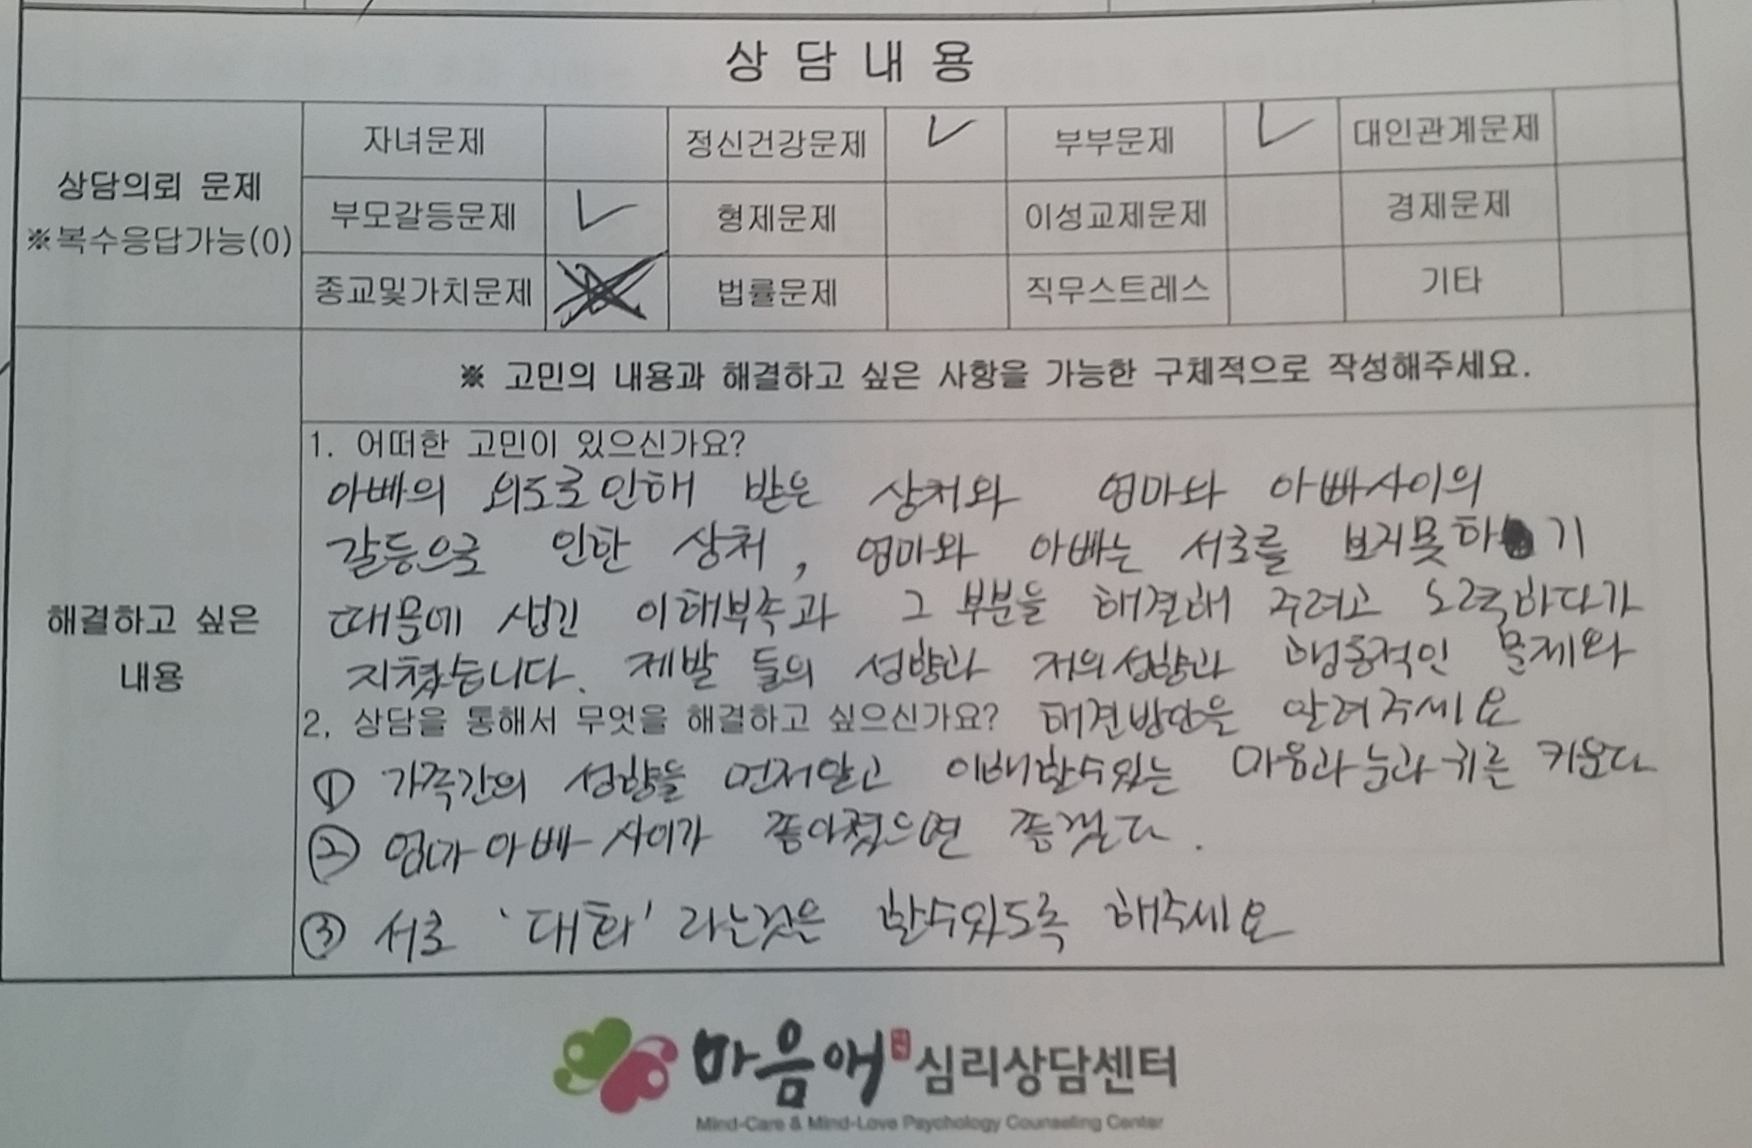 상 담 내 용
자녀문제 정신건강문제 ✓ 부부문제 ✓ 대인관계문제
상담의뢰 문제
※복수응답가능(0)
부모갈등문제 ✓ 형제문제 이성교제문제 경제문제
종교및가치문제 법률문제 직무스트레스 기타
※ 고민의 내용과 해결하고 싶은 사항을 가능한 구체적으로 작성해주세요.
해결하고 싶은
내용
1. 어떠한 고민이 있으신가요?
아빠의 외도로인해 받은 상처와 엄마와 아빠사이의
갈등으로 인한 상처, 엄마와 아빠는 서로를 보지못하기
때문에 생긴 이해부족과 그 부분을 해결해 주려고 노력하다가
지쳤습니다. 제발 둘의 성향과 저의성향과 행동적인 문제와
2. 상담을 통해서 무엇을 해결하고 싶으신가요? 해결방안을 알려주세요
① 가족간의 성향을 먼저알고 이해할수있는 마음과눈과귀를 키운다
② 엄마아빠사이가 좋아졌으면 좋겠다.
③ 서로 '대화'라는것은 할수있도록 해주세요
마음애 심리상담센터
Mind-Care & Mind-Love Psychology Counseling Center